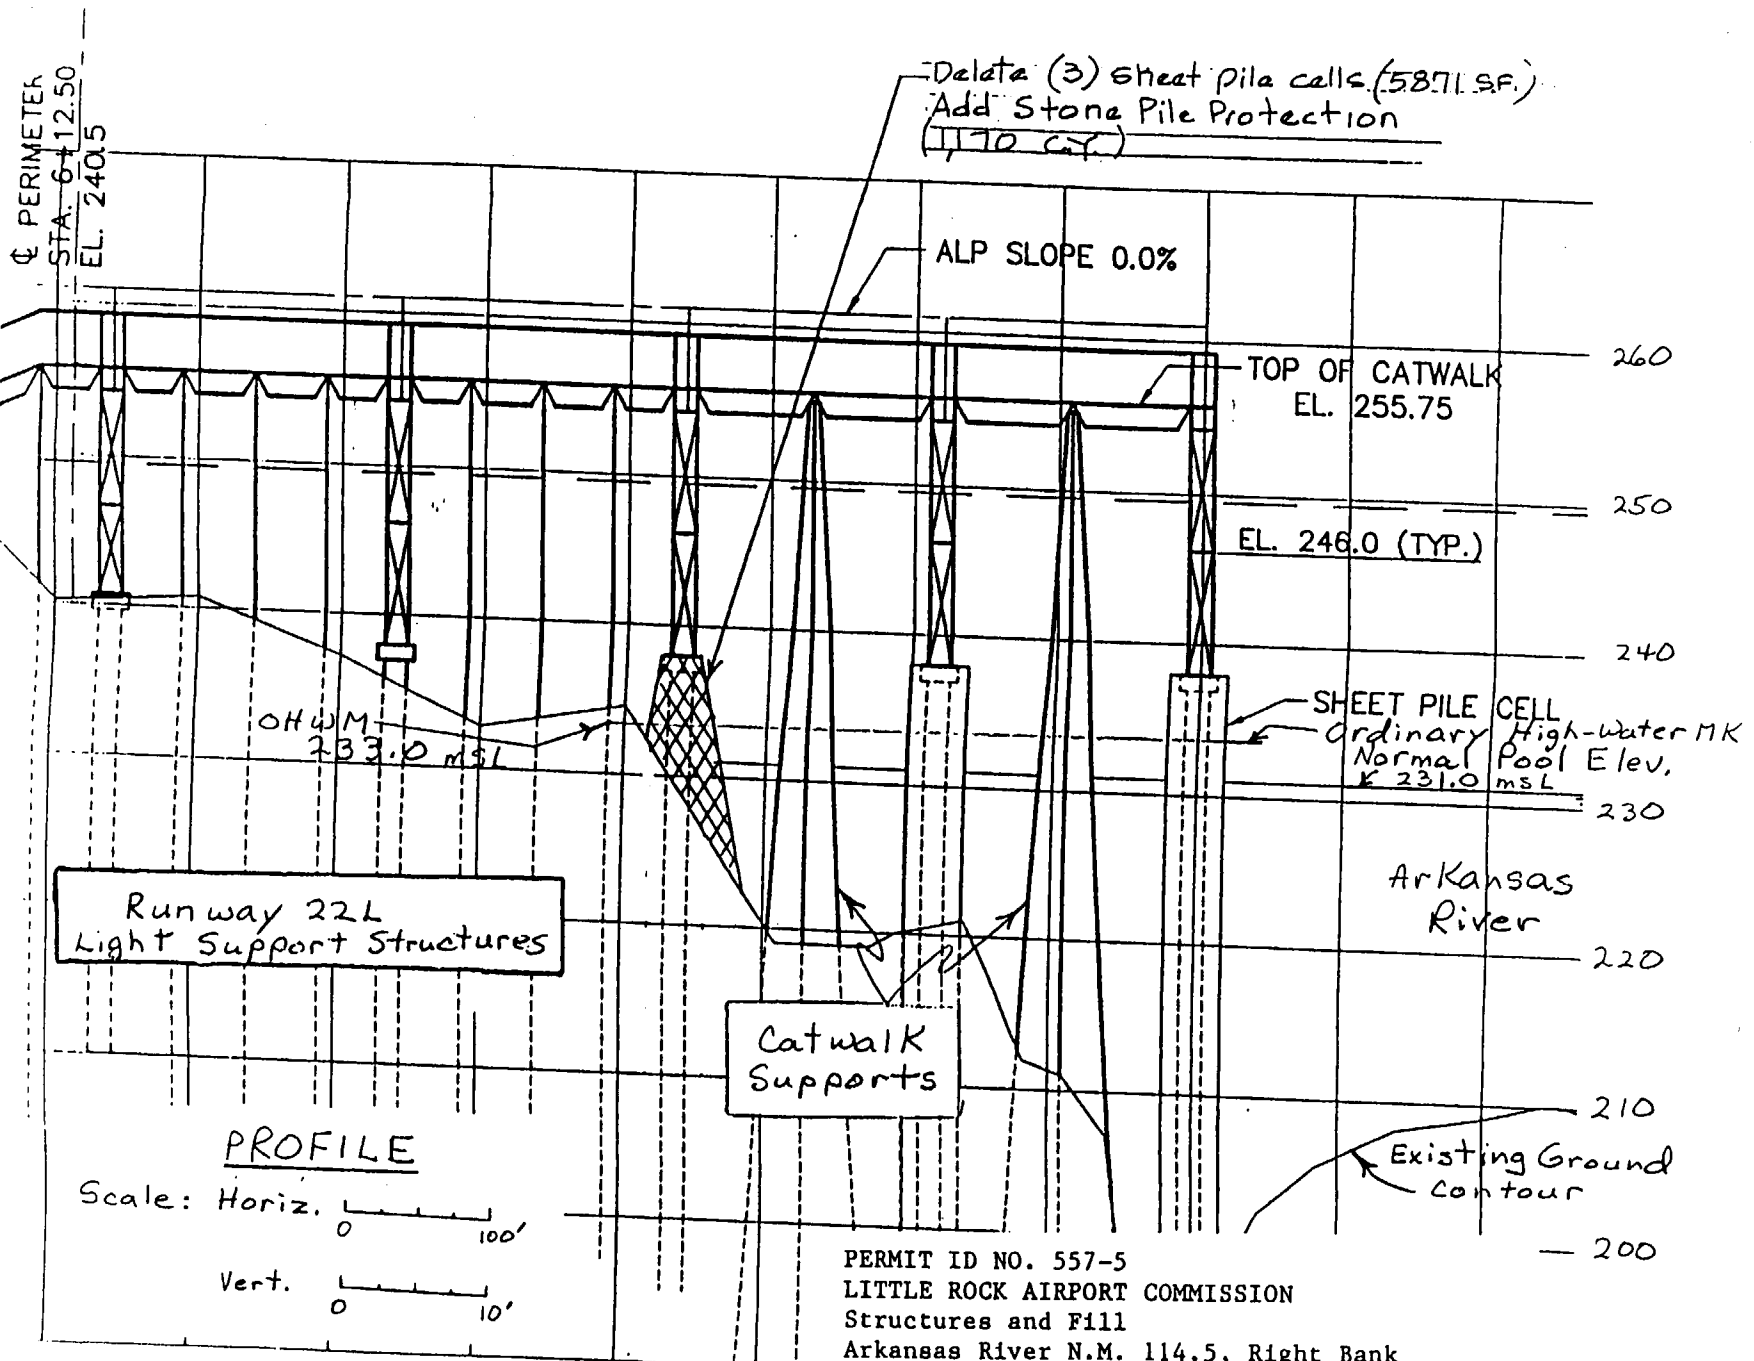 ℄ PERIMETER
STA. 6+12.50
EL. 240.5
Delete (3) sheet pile cells (5871 S.F.)
Add Stone Pile Protection
(1,170 C.Y.)
ALP SLOPE 0.0%
260
TOP OF CATWALK
EL. 255.75
250
EL. 246.0 (TYP.)
240
SHEET PILE CELL
Ordinary High-Water MK
Normal Pool Elev.
231.0 msL
OHWM
233.0 msL
230
Arkansas
River
Runway 22L
Light Support Structures
220
Catwalk
Supports
210
PROFILE
Existing Ground
Contour
Scale: Horiz.
0 100'
200
Vert.
0 10'
PERMIT ID NO. 557-5
LITTLE ROCK AIRPORT COMMISSION
Structures and Fill
Arkansas River N.M. 114.5, Right Bank